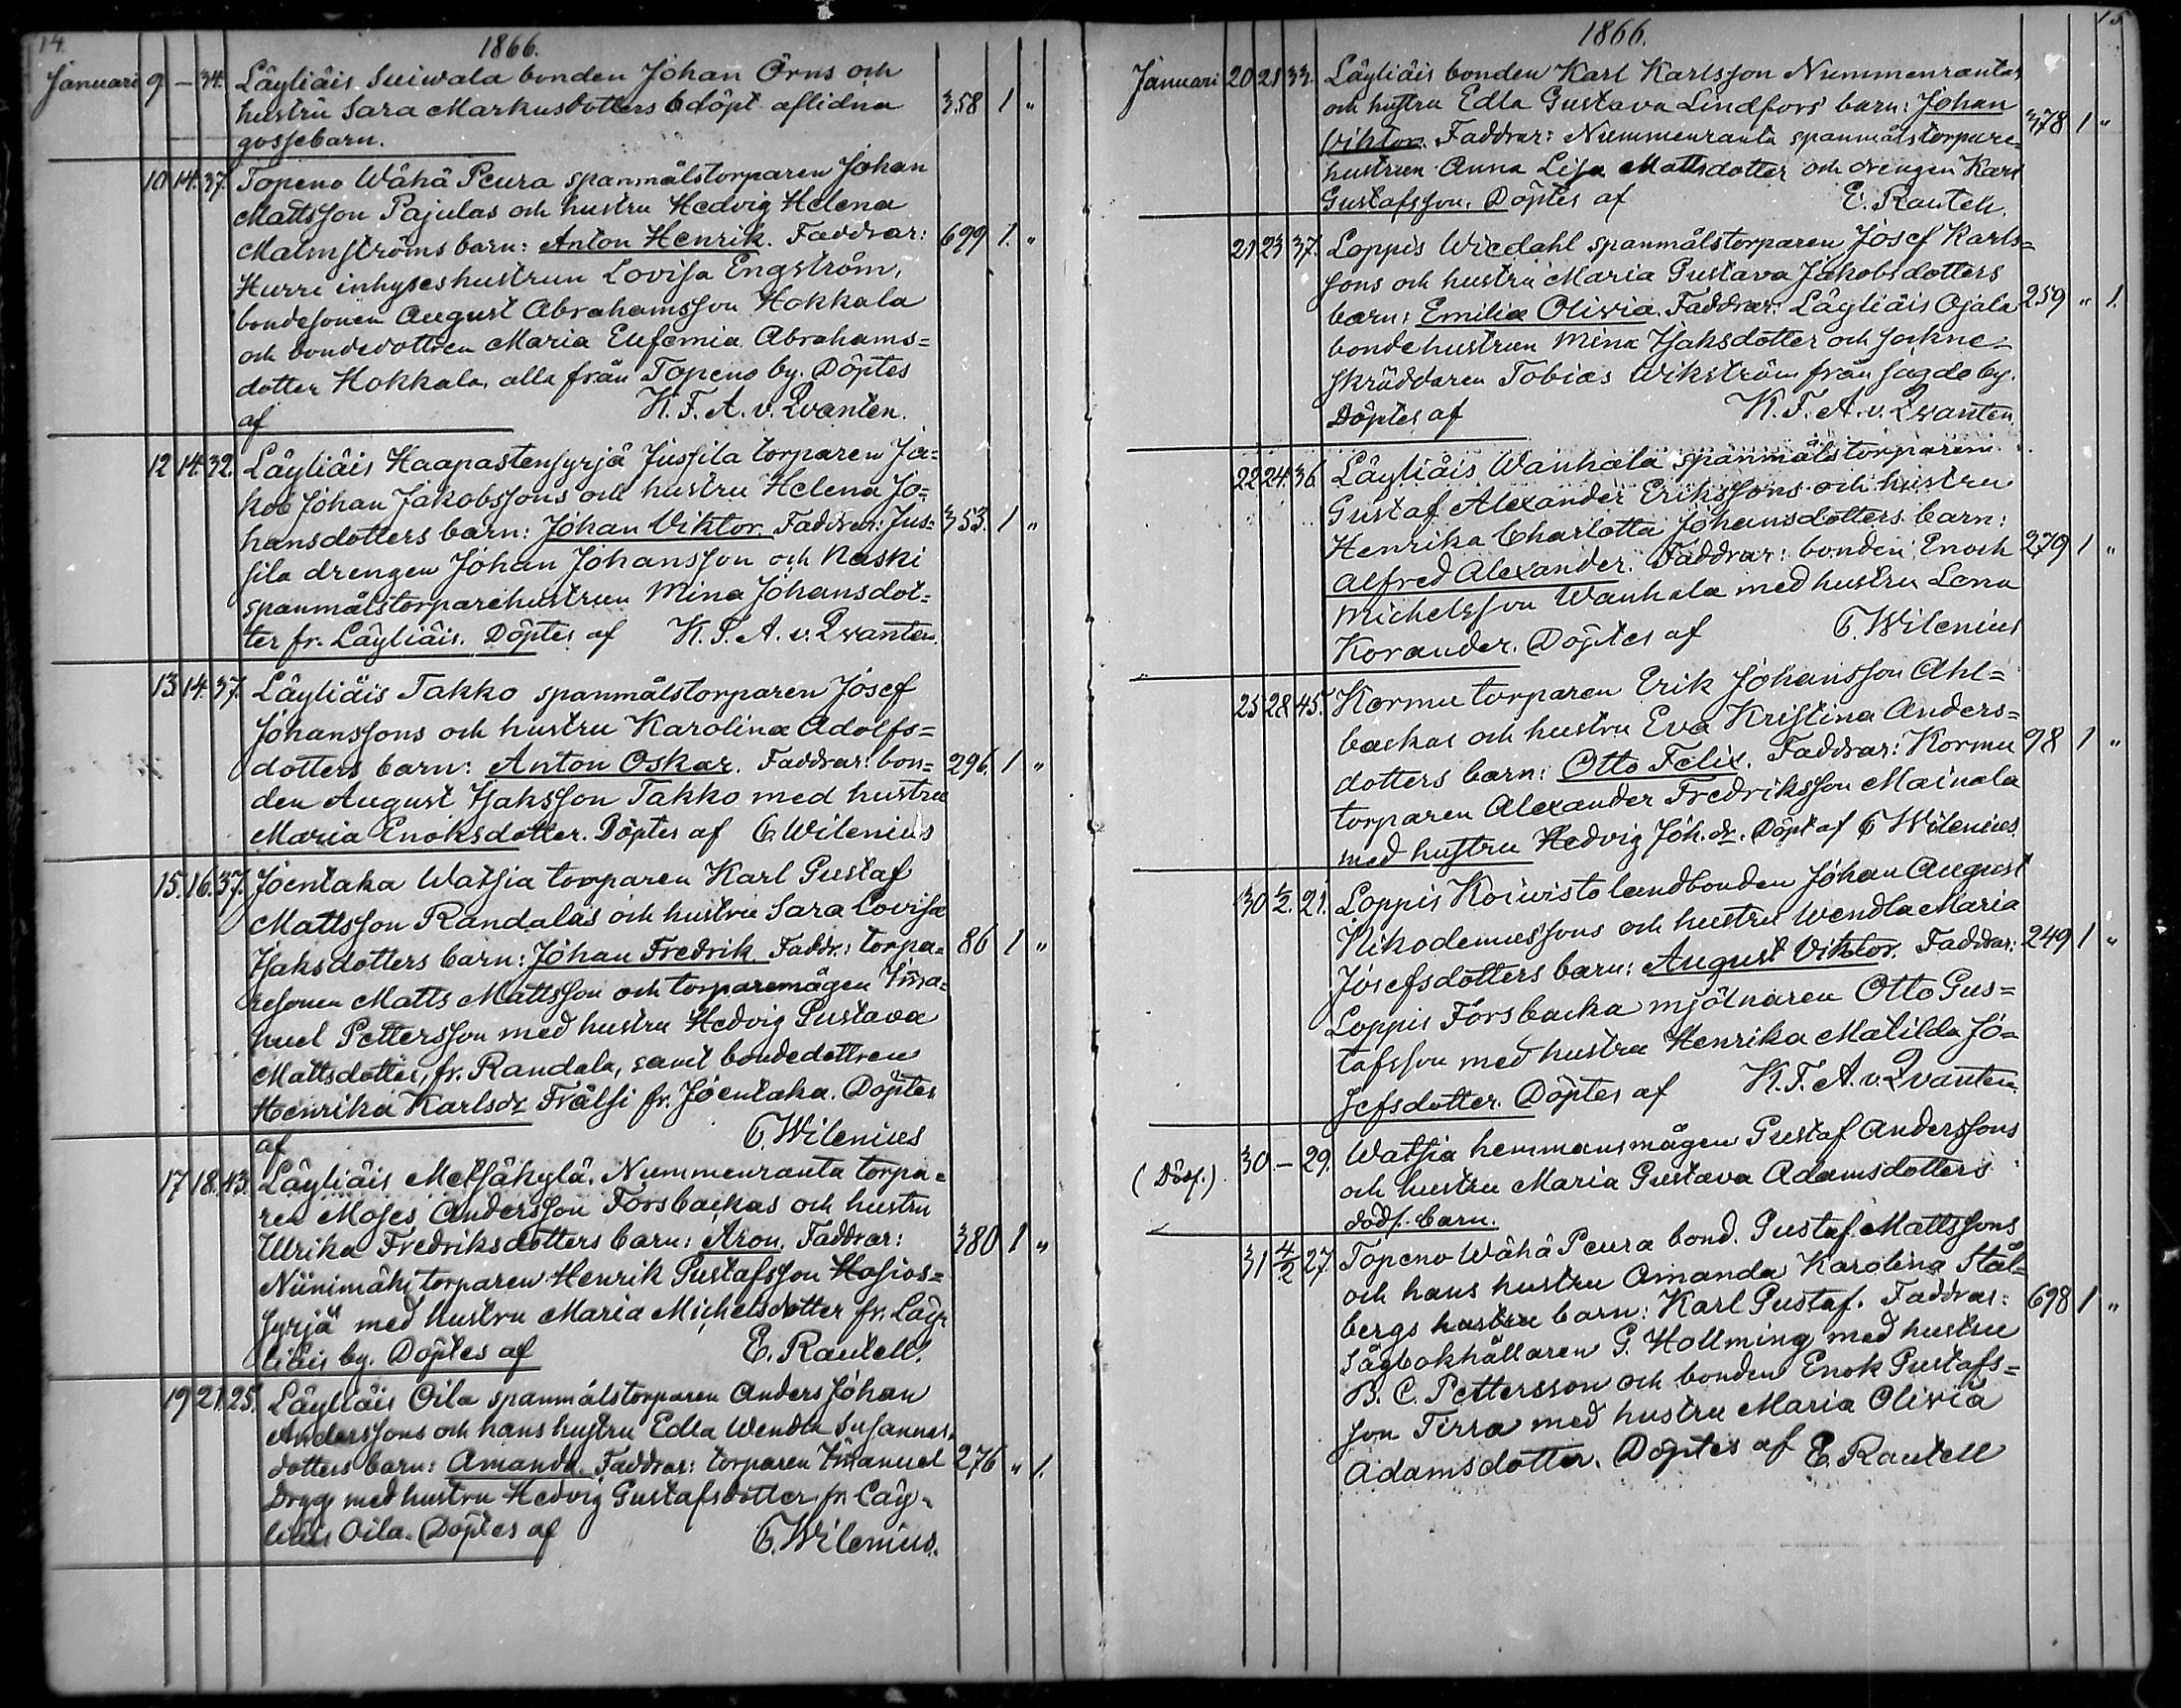 14.
1866.
Januari 9 – 34. Läyliäis Suiwala bonden Johan Örns och
hustru Sara Markusdotters odöpt aflidna 358 1 "
gossebarn.
10 14. 37. Topeno Wähä Peura spanmålstorparen Johan
Mattsson Pajulas och hustru Hedvig Helena
Malmströms barn: Anton Henrik. Faddrar: 699 1. "
Hurri inhyseshustrun Lovisa Engström,
bondesonen August Abrahamsson Hokkala
och bondedottren Maria Eufemia Abrahams=
dotter Hokkala, alla från Topeno by. Döptes
af K. F. A. v. Qvanten.
12 14. 32. Läyliäis Haapastensyrjä Jussila torparen Ja=
kob Johan Jakobssons och hustru Helena Jo=
hansdotters barn: Johan Viktor. Faddrar: Jus= 353. 1 "
sila drengen Johan Johansson och Naski
spanmålstorparehustrun Mina Johansdot=
ter fr. Läyliäis. Döptes af K. F. A. v. Qvanten.
13 14. 37. Läyliäis Takko spanmålstorparen Josef
Johanssons och hustru Karolina Adolfs=
dotters barn: Anton Oskar. Faddrar: bon= 296. 1 "
den August Isaksson Takko med hustru
Maria Enoksdotter. Döptes af C. Wilenius
15. 16. 37. Joentaka Watsia torparen Karl Gustaf
Mattsson Randalas och hustru Sara Lovisa
Isaksdotters barn: Johan Fredrik. Faddr.: torpa= 86 1 "
resonen Matts Mattsson och torparemågen Ima=
nuel Pettersson med hustru Hedvig Gustava
Mattsdotter, fr. Randala, samt bondedottren
Henrika Karlsdr Frälsi fr. Joentaka. Döptes
af C. Wilenius
17 18. 43. Läyliäis Metsäkylä, Nummenranta torpa=
ren Moses Andersson Forsbackas och hustru
Ulrika Fredriksdotters barn: Aron. Faddrar: 380 1 "
Niinimäki torparen Henrik Gustafsson Hosios=
syrjä med hustru Maria Michelsdotter fr. Läy=
liäis by. Döptes af E. Rautell.
19 21. 25. Läyliäis Oila spanmålstorparen Anders Johan
Anderssons och hans hustru Edla Wendla Susannas=
dotters barn: Amanda. Faddrar: torparen Imanuel 276 " 1.
Drygg med hustru Hedvig Gustafsdotter fr. Läy=
liäis Oila. Döptes af C. Wilenius.
15
1866.
Januari 20 21 33. Läyliäis bonden Karl Karlsson Nummenrantas
och hustru Edla Gustava Lindfors barn: Johan
Viktor. Faddrar: Nummenranta spanmålstorpare= 378 1 "
hustrun Anna Lisa Mattsdotter och drengen Karl
Gustafsson. Döptes af E. Rautell.
21 23 37. Loppis Wiedahl spanmålstorparen Josef Karls=
sons och hustru Maria Gustava Jakobsdotters
barn: Emilia Olivia. Faddrar: Läyliäis Ojala 259 " 1.
bondehustrun Mina Isaksdotter och sockne=
skräddaren Tobias Wikström från sagde by.
Döptes af K. F. A. v. Qvanten.
22 24. 36. Läyliäis Wanhala spanmålstorparen
Gustaf Alexander Erikssons och hustru
Henrika Charlotta Johansdotters barn:
Alfred Alexander. Faddrar: bonden Enoch 279 1 "
Michelsson Wanhala med hustru Lena
Korander. Döptes af C. Wilenius
25 28 45. Kormu torparen Erik Johansson Ahl=
backas och hustru Eva Kristina Anders=
dotters barn: Otto Felix. Faddrar: Kormu 98 1 "
torparen Alexander Fredriksson Mainala
med hustru Hedvig Joh.dr. Döpt af C Wilenius
30 1/2. 21. Loppis Koiwisto landbonden Johan August
Nikodemussons och hustru Wendla Maria
Josefsdotters barn: August Viktor. Faddrar: 249 1 "
Loppis Forsbacka mjölnaren Otto Gus=
tafsson med hustru Henrika Matilda Jo=
sefsdotter. Döptes af K. F. A. v. Qvanten
(Dödf.) 30 – 29. Watsia hemmansmågen Gustaf Anderssons
och hustru Maria Gustava Adamsdotters
dödf. barn.
31 4/2 27 Topeno Wähä Peura bond. Gustaf Mattssons
och hans hustru Amanda Karolina Stål=
bergs hustru barn: Karl Gustaf. Faddrar: 698 1 "
Sågbokhållaren G. Hollming med hustru
B. C. Pettersson och bonden Enok Gustafs=
son Tirra med hustru Maria Olivia
Adamsdotter. Döptes af E. Rautell